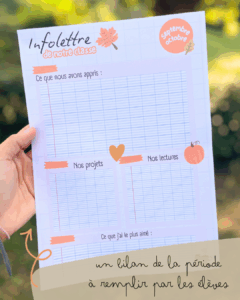 Infolettre
de notre classe
septembre
octobre
Ce que nous avons appris :
Nos projets
Nos lectures
Ce que j'ai le plus aimé :
un bilan de la période
à remplir par les élèves